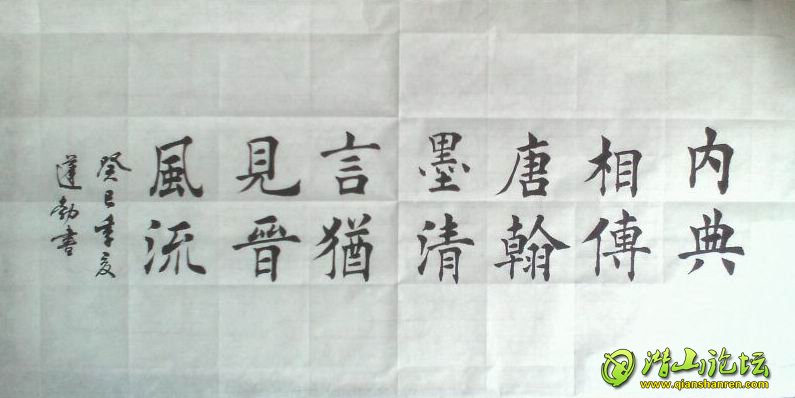 内典
相傳
唐翰
墨清
言猶
見晉
風流
癸巳季夏
蓬勃書
潜山论坛
www.qianshanren.com